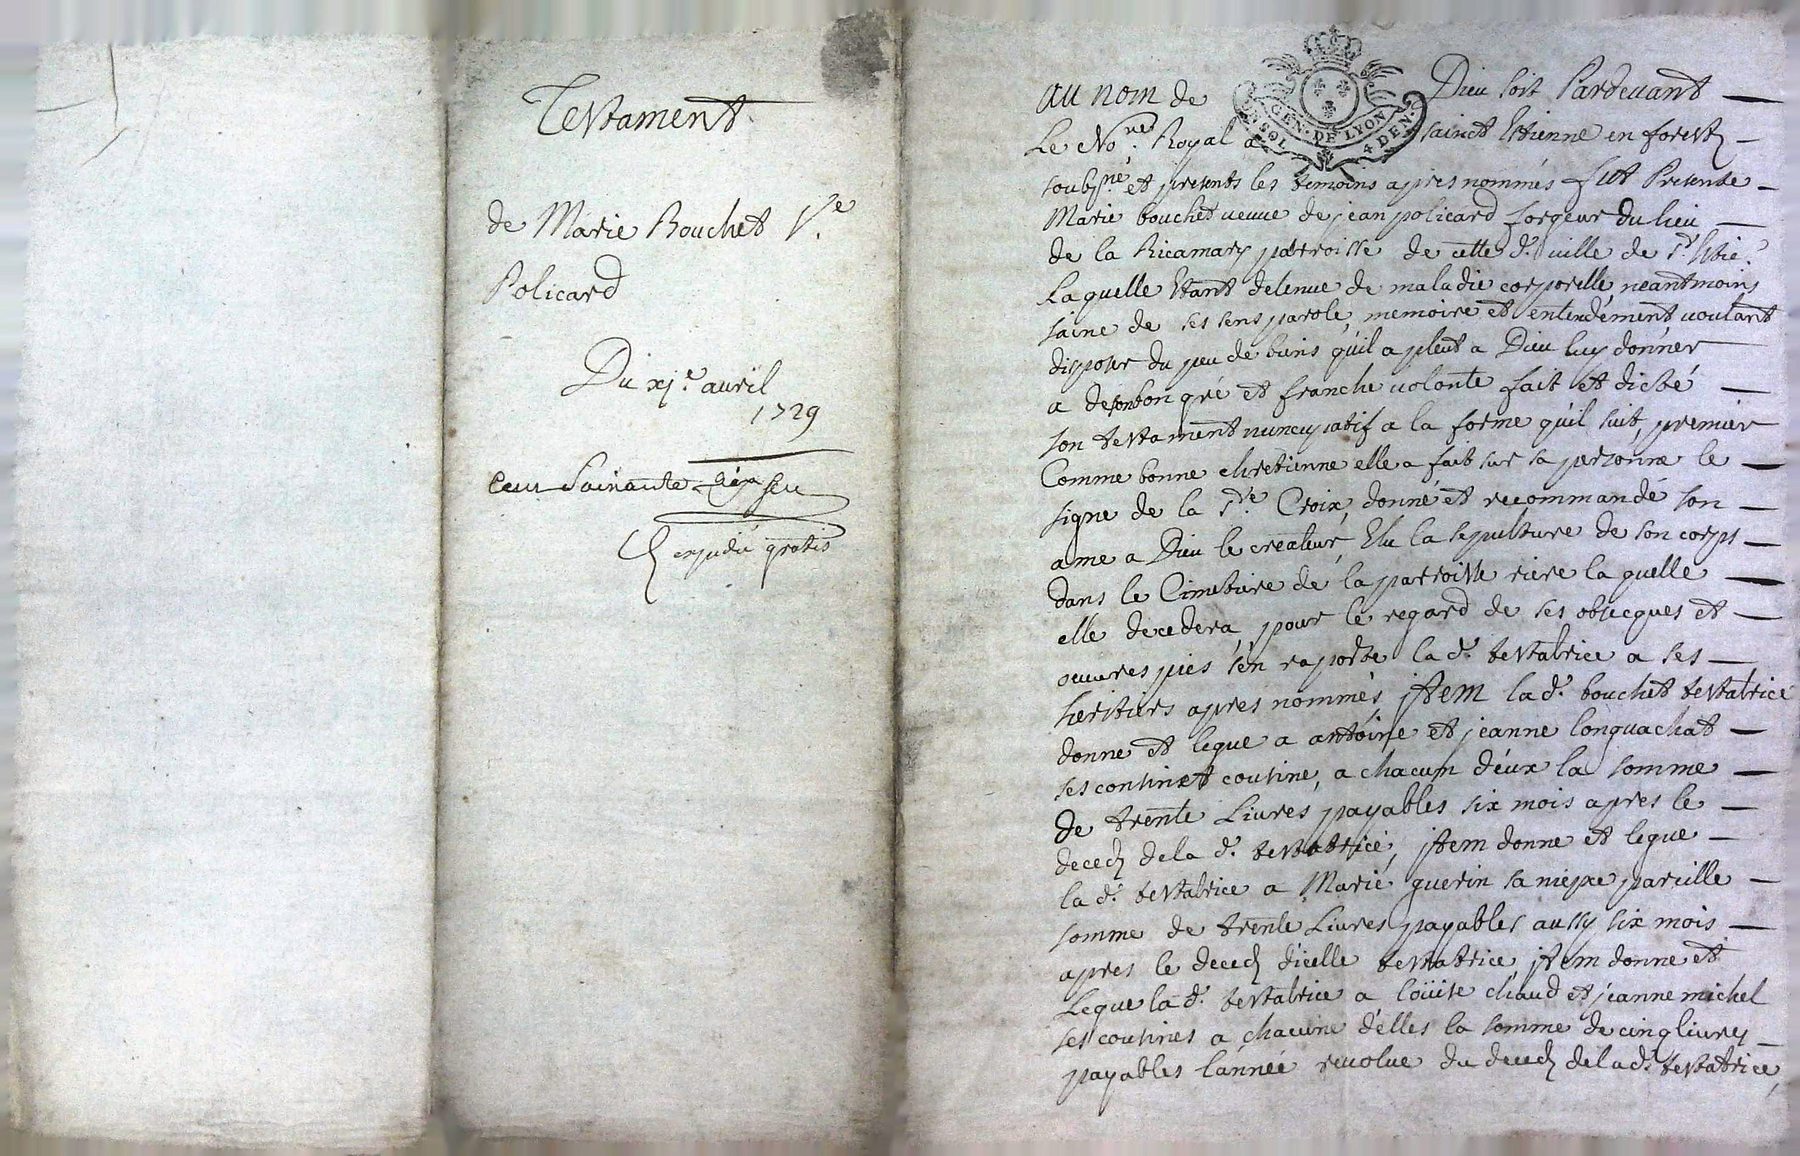 Testament
de Marie Bouchet V.e
Policard
Du xj.e auril
1729
Cent Soixante
expedié gratis
GEN. DE LYON
SOL 4 DEN.
au nom de Dieu soit Pardeuant
Le No.re Royal a sainct Etienne en forestz
soubsné et presents les temoins apres nommés fut Presente
Marie bouchet veuue de jean policard forgeur du lieu
de la Ricamary parroisse de cette d.e ville de s.t Etie.
Laquelle Etant detenue de maladie corporelle, neantmoins
saine de ses sens parole, memoire et entendement, voulant
disposer du peu de biens qu'il a pleut a Dieu luy donner
a de son bon gré et franche volonte fait et dicté
son testament nuncupatif a la forme qu'il suit, premier
Comme bonne chretienne elle a fait sur sa personne le
signe de la s.te Croix, donné et recommandé son
ame a Dieu le createur, Elu la sepulture de son corps
dans le Cimetiere de la parroisse riere la quelle
elle decedera, pour le regard de ses obsecques et
ouures pies s'en raporte la d.e testatrice a ses
heritiers apres nommés, jtem la d.e bouchet testatrice
donne et legue a antoine et jeanne longuachat
ses cousin et cousine, a chacun d'eux la somme
de trente Liures payables six mois apres le
decedz de la d.e testatrice, jtem donne et legue
la d.e testatrice a Marie guerin sa niepce pareille
somme de trente Liures payables aussy six mois
apres le decedz d'icelle testatrice, jtem donne et
Legue la d.e testatrice a loüise chaud et jeanne michel
ses cousines a chacune d'elles la somme de cinq liures
payables l'année reuolue du decedz de la d.e testatrice,